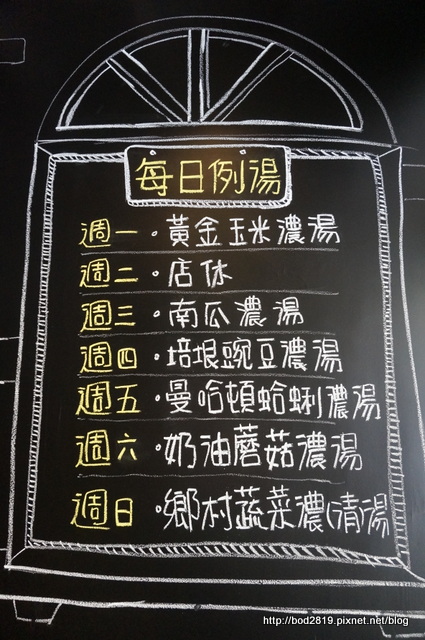 每日例湯
週一・黃金玉米濃湯
週二・店休
週三・南瓜濃湯
週四・培垠豌豆濃湯
週五・曼哈頓蛤蜊濃湯
週六・奶油蘑菇濃湯
週日・鄉村蔬菜濃(清湯
http://bod2819.pixnet.net/blog